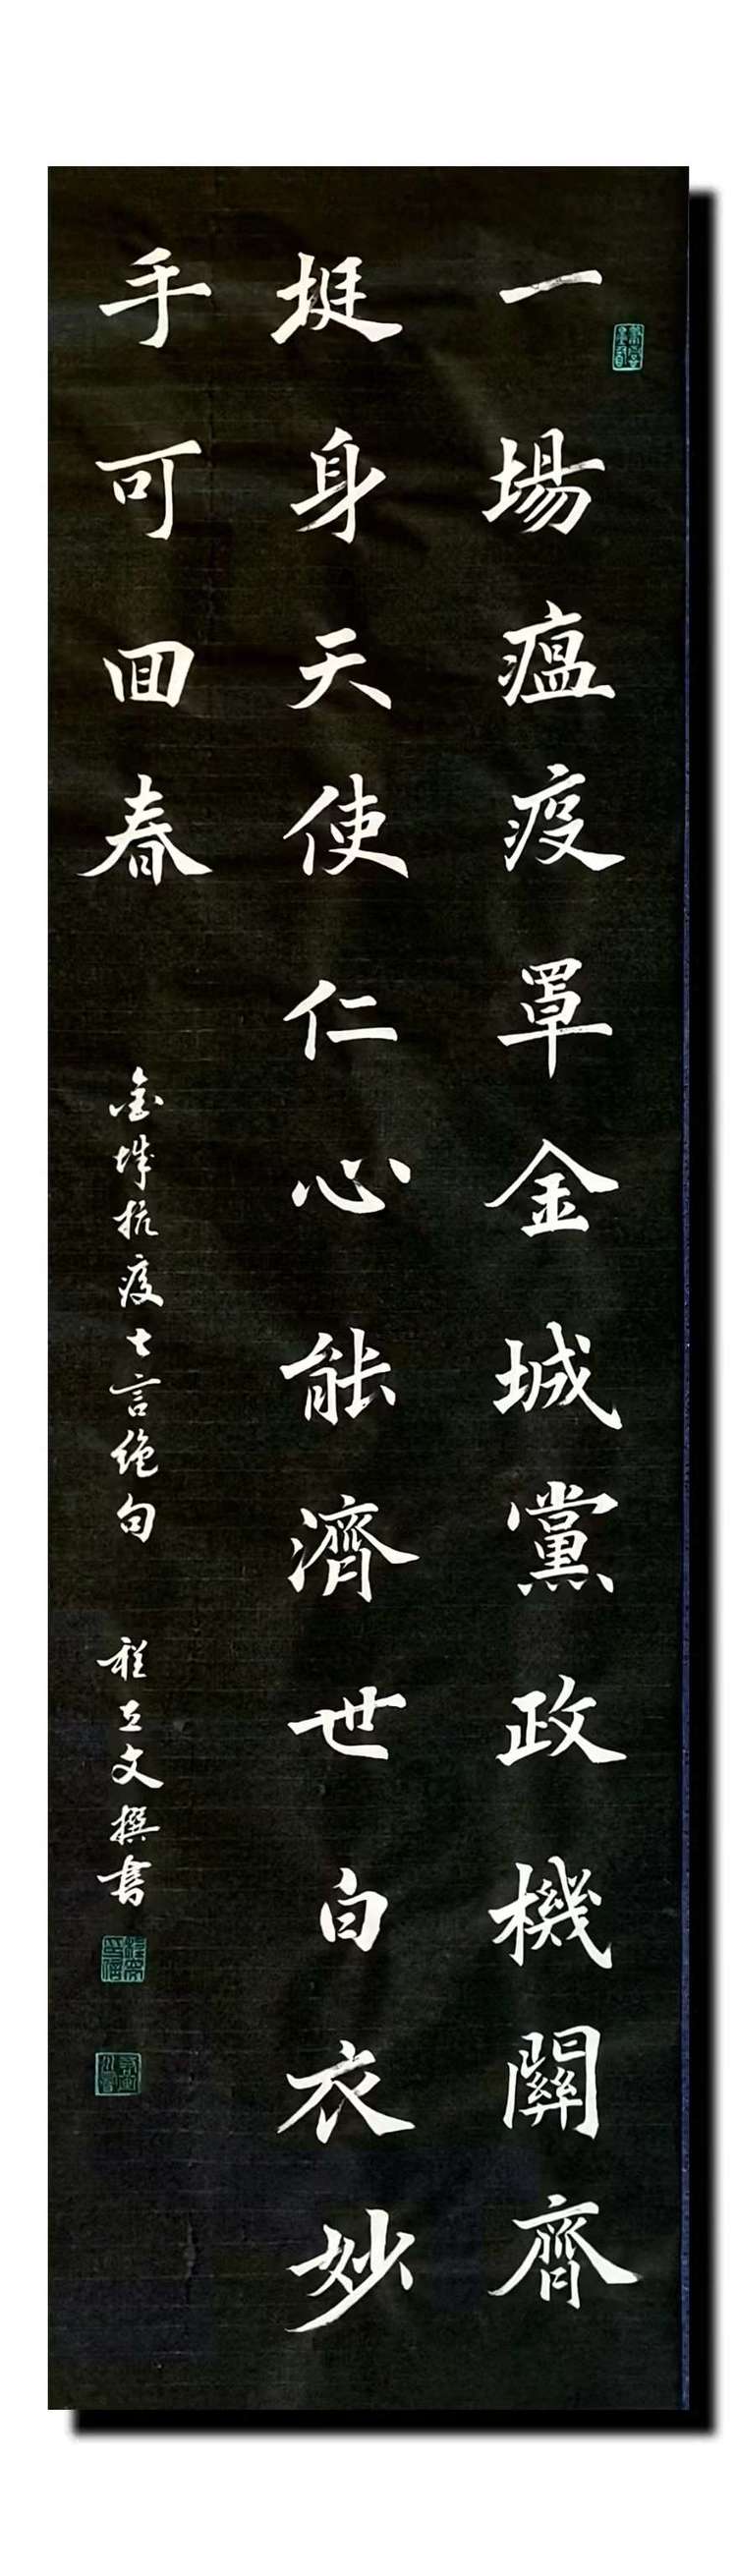 一場瘟疫罩金城黨政機關齊
挺身天使仁心能濟世白衣妙
手可回春
金城抗疫七言绝句
程立文撰书